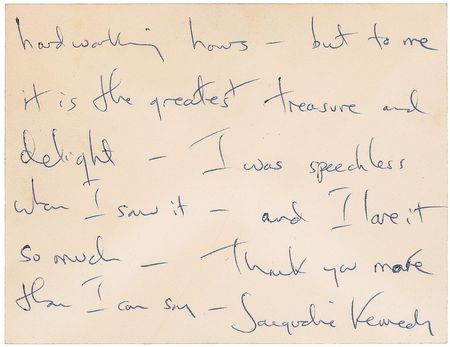 hardworking hours – but to me
it is the greatest treasure and
delight – I was speechless
when I saw it – and I love it
so much – Thank you more
than I can say – Jacqueline Kennedy